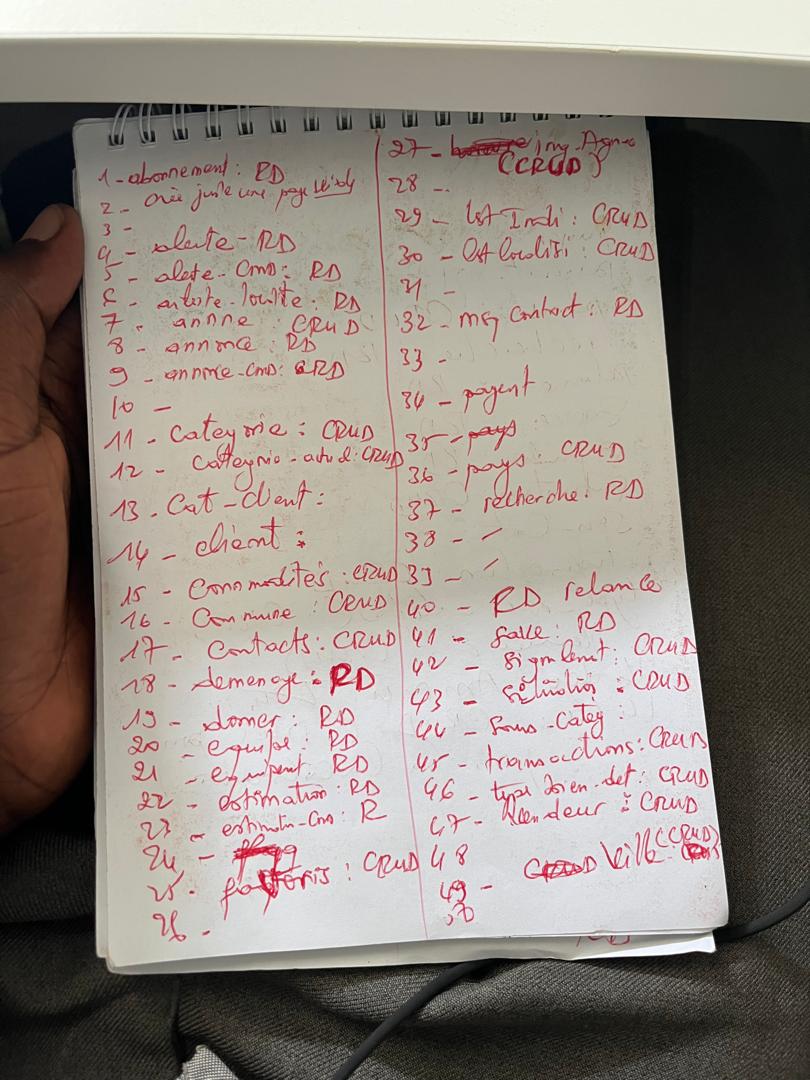 1 - abonnement : RD
2 - crée juste une page
3 -
4 - alerte - RD
5 - alete - Cmd : RD
6 - : RD
7 - annne : CRUD
8 - annonce : RD
9 - annonce - Cmd : RD
10 -
11 - Categorie : CRUD
12 - Categorie - : CRUD
13 - Cat - client :
14 - client :
15 - Commodités : CRUD
16 - Commune : CRUD
17 - Contacts : CRUD
18 - demenage : RD
19 - : RD
20 - equipe : RD
21 - equipent : RD
22 - estimation : RD
23 - estimatn - Cmd : R
24 -
25 - favoris : CRUD
26 -
27 - img - Agnce
(CRUD)
28 -
29 - lst Indi : CRUD
30 - lst localiti : CRUD
31 -
32 - msg Contact : RD
33 -
34 - payent
35 - pays
36 - pays : CRUD
37 - recherche : RD
38 -
39 -
40 - RD relance
41 - : RD
42 - signlemt : CRUD
43 - situation : CRUD
44 - Sous - Categ :
45 - transactions : CRUD
46 - type bien - det : CRUD
47 - Vendeur : CRUD
48 Ville (CRUD)
49 -
50